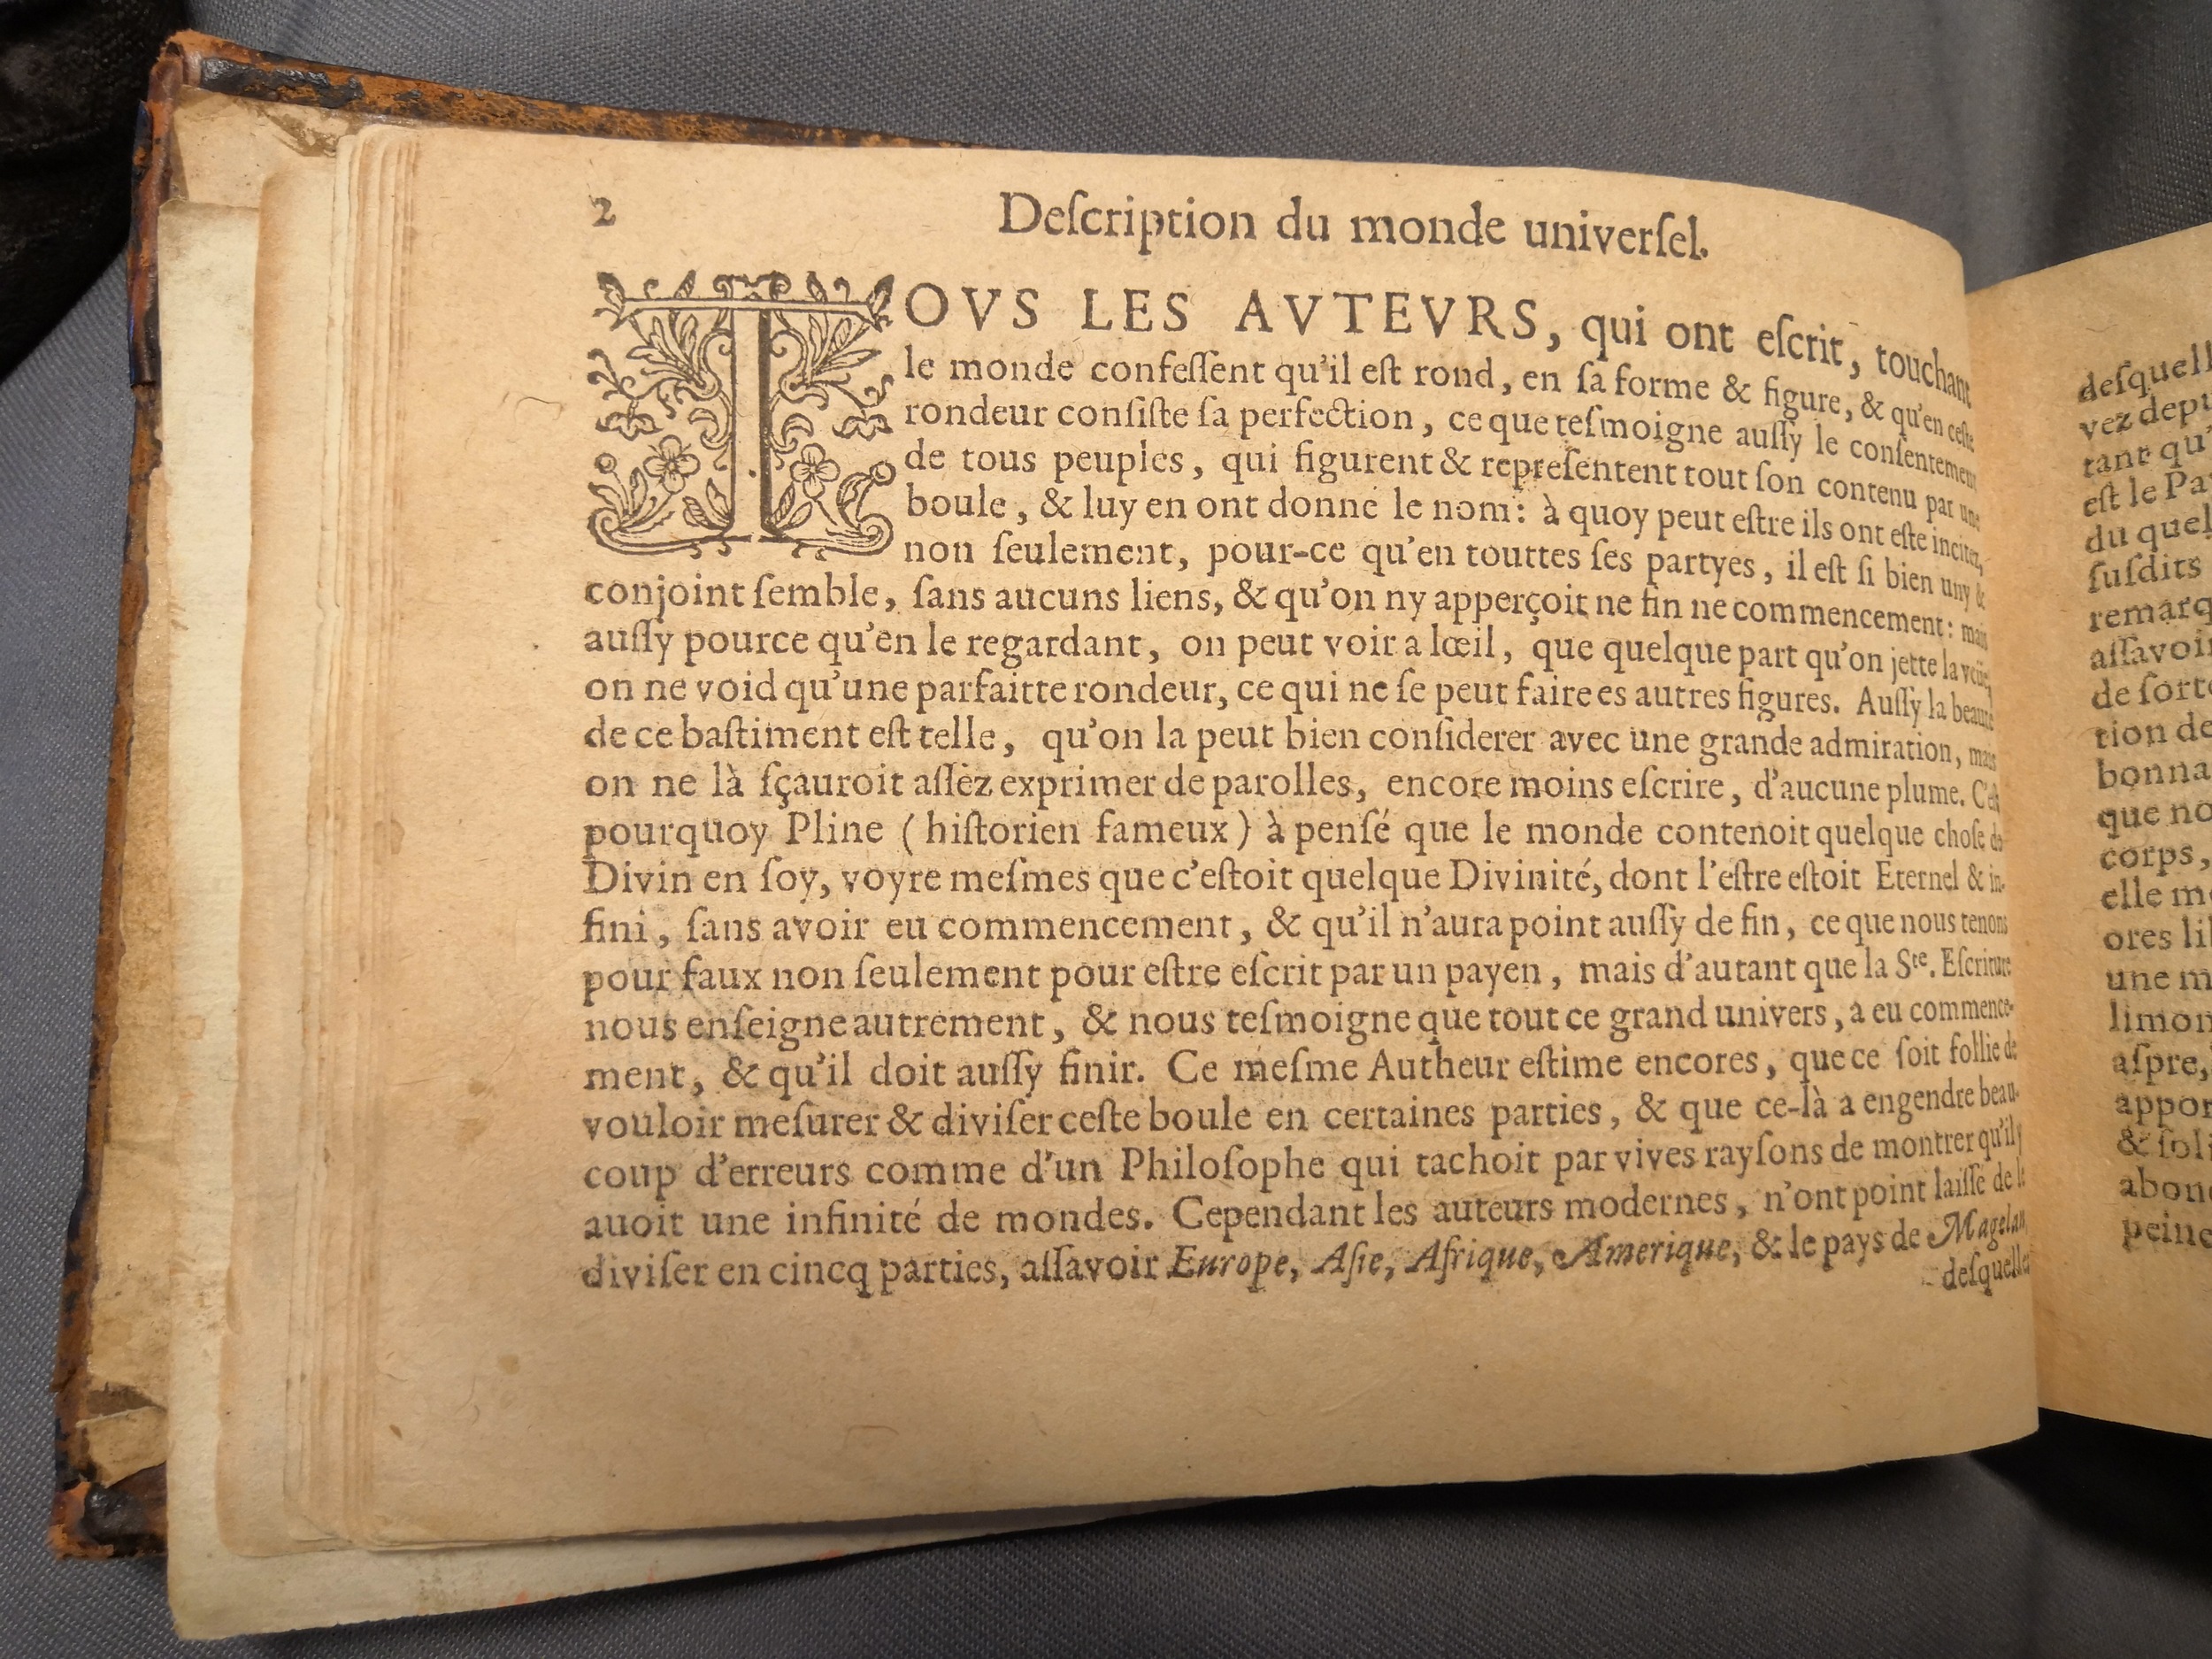 2
Deſcription du monde univerſel.
TOVS LES AVTEVRS, qui ont eſcrit, touchant
le monde confeſſent qu'il eſt rond, en ſa forme & figure, & qu'en ceſte
rondeur conſiſte ſa perfection, ce que teſmoigne auſſy le conſentement
de tous peuples, qui figurent & repreſentent tout ſon contenu par une
boule, & luy en ont donné le nom: à quoy peut eſtre ils ont eſte incitez,
non ſeulement, pour-ce qu'en touttes ſes partyes, il eſt ſi bien uny &
conjoint ſemble, ſans aucuns liens, & qu'on ny apperçoit ne fin ne commencement: mais
auſſy pource qu'en le regardant, on peut voir a lœil, que quelque part qu'on jette la veüe,
on ne void qu'une parfaitte rondeur, ce qui ne ſe peut faire es autres figures. Auſſy la beauté
de ce baſtiment eſt telle, qu'on la peut bien conſiderer avec une grande admiration, mais
on ne là ſçauroit aſſez exprimer de parolles, encore moins eſcrire, d'aucune plume. C'eſt
pourquoy Pline (hiſtorien fameux) à penſé que le monde contenoit quelque choſe de
Divin en ſoy, voyre meſmes que c'eſtoit quelque Divinité, dont l'eſtre eſtoit Eternel & in-
fini, ſans avoir eu commencement, & qu'il n'aura point auſſy de fin, ce que nous tenons
pour faux non ſeulement pour eſtre eſcrit par un payen, mais d'autant que la Ste. Eſcriture
nous enſeigne autrement, & nous teſmoigne que tout ce grand univers, a eu commence-
ment, & qu'il doit auſſy finir. Ce meſme Autheur eſtime encores, que ce ſoit follie de
vouloir meſurer & diviſer ceſte boule en certaines parties, & que ce-là a engendre beau-
coup d'erreurs comme d'un Philoſophe qui tachoit par vives rayſons de montrer qu'il y
auoit une infinité de mondes. Cependant les auteurs modernes, n'ont point laiſſe de le
diviſer en cincq parties, aſſavoir Europe, Aſie, Afrique, Amerique, & le pays de Magelan,
deſquelles
vez
tant qu'
eſt le
du quel
ſuſdits
de
tion de
que
corps,
elle
ores
une
aſpre,
&
peine